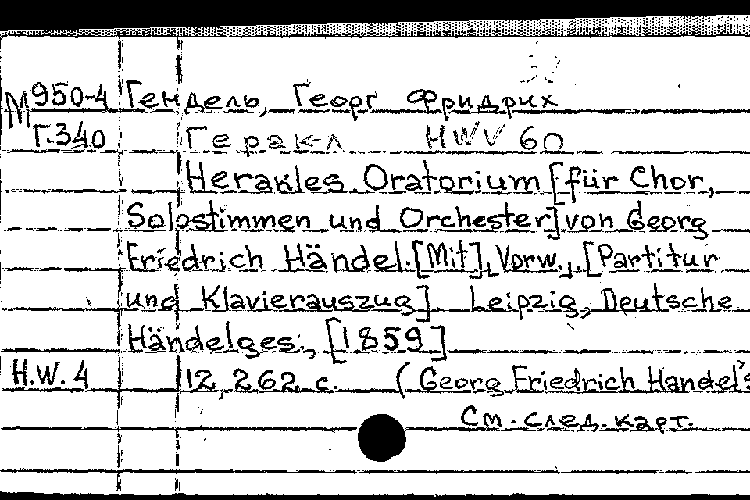 М 950-4 Гендель, Георг Фридрих
Г.340 Геракл HWV 60
Herakles. Oratorium [für Chor,
Solostimmen und Orchester] von Georg
Friedrich Händel. [Mit] „Vorw.„. [Partitur
und Klavierauszug]. Leipzig, Deutsche
Händelges., [1859]
H.W. 4 12, 262 с. (Georg Friedrich Handel's
См. след. карт.